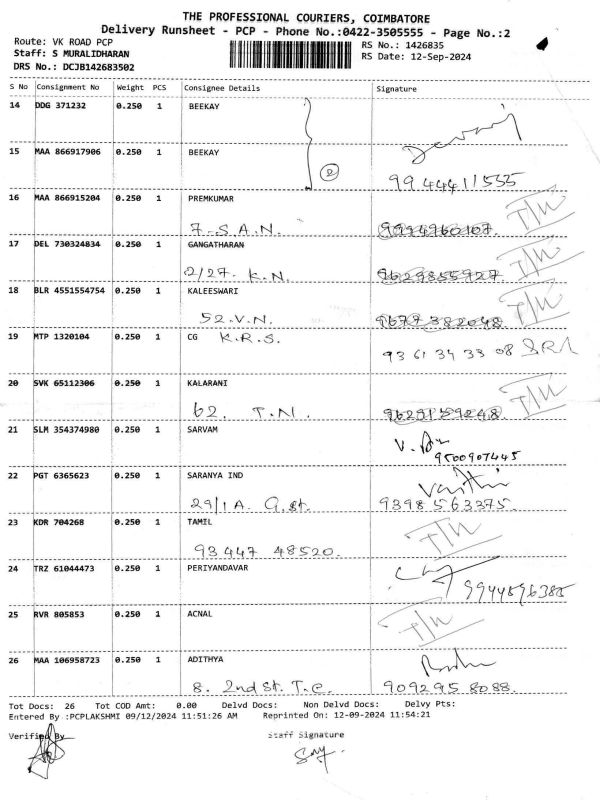 THE PROFESSIONAL COURIERS, COIMBATORE
Delivery Runsheet - PCP - Phone No.:0422-3505555 - Page No.:2
Route: VK ROAD PCP
Staff: S MURALIDHARAN
DRS No.: DCJB142683502
RS No.: 1426835
RS Date: 12-Sep-2024
S No Consignment No Weight PCS Consignee Details Signature
14 DDG 371232 0.250 1 BEEKAY
15 MAA 866917906 0.250 1 BEEKAY
2
99 44411555
16 MAA 866915204 0.250 1 PREMKUMAR
7-S.A.N. 9994960107
T/N
17 DEL 730324834 0.250 1 GANGATHARAN
2/27. K.N. 9629855927
T/N
18 BLR 4551554754 0.250 1 KALEESWARI
52.V.N. 9677 382048
T/N
19 MTP 1320104 0.250 1 CG K.R.S.
93 61 34 33 08
20 SVK 65112306 0.250 1 KALARANI
62. T.N. 9629159248
T/N
21 SLM 354374980 0.250 1 SARVAM
9500907445
22 PGT 6365623 0.250 1 SARANYA IND
29/1A. G.st. 9398563375
23 KDR 704268 0.250 1 TAMIL
93447 48520.
T/N
24 TRZ 61044473 0.250 1 PERIYANDAVAR
9944896385
25 RVR 805853 0.250 1 ACNAL
T/N
26 MAA 106958723 0.250 1 ADITHYA
8. 2nd St. T.C. 909295 8088.
Tot Docs: 26 Tot COD Amt: 0.00 Delvd Docs: Non Delvd Docs: Delvy Pts:
Entered By :PCPLAKSHMI 09/12/2024 11:51:26 AM Reprinted On: 12-09-2024 11:54:21
Verified By
Staff Signature